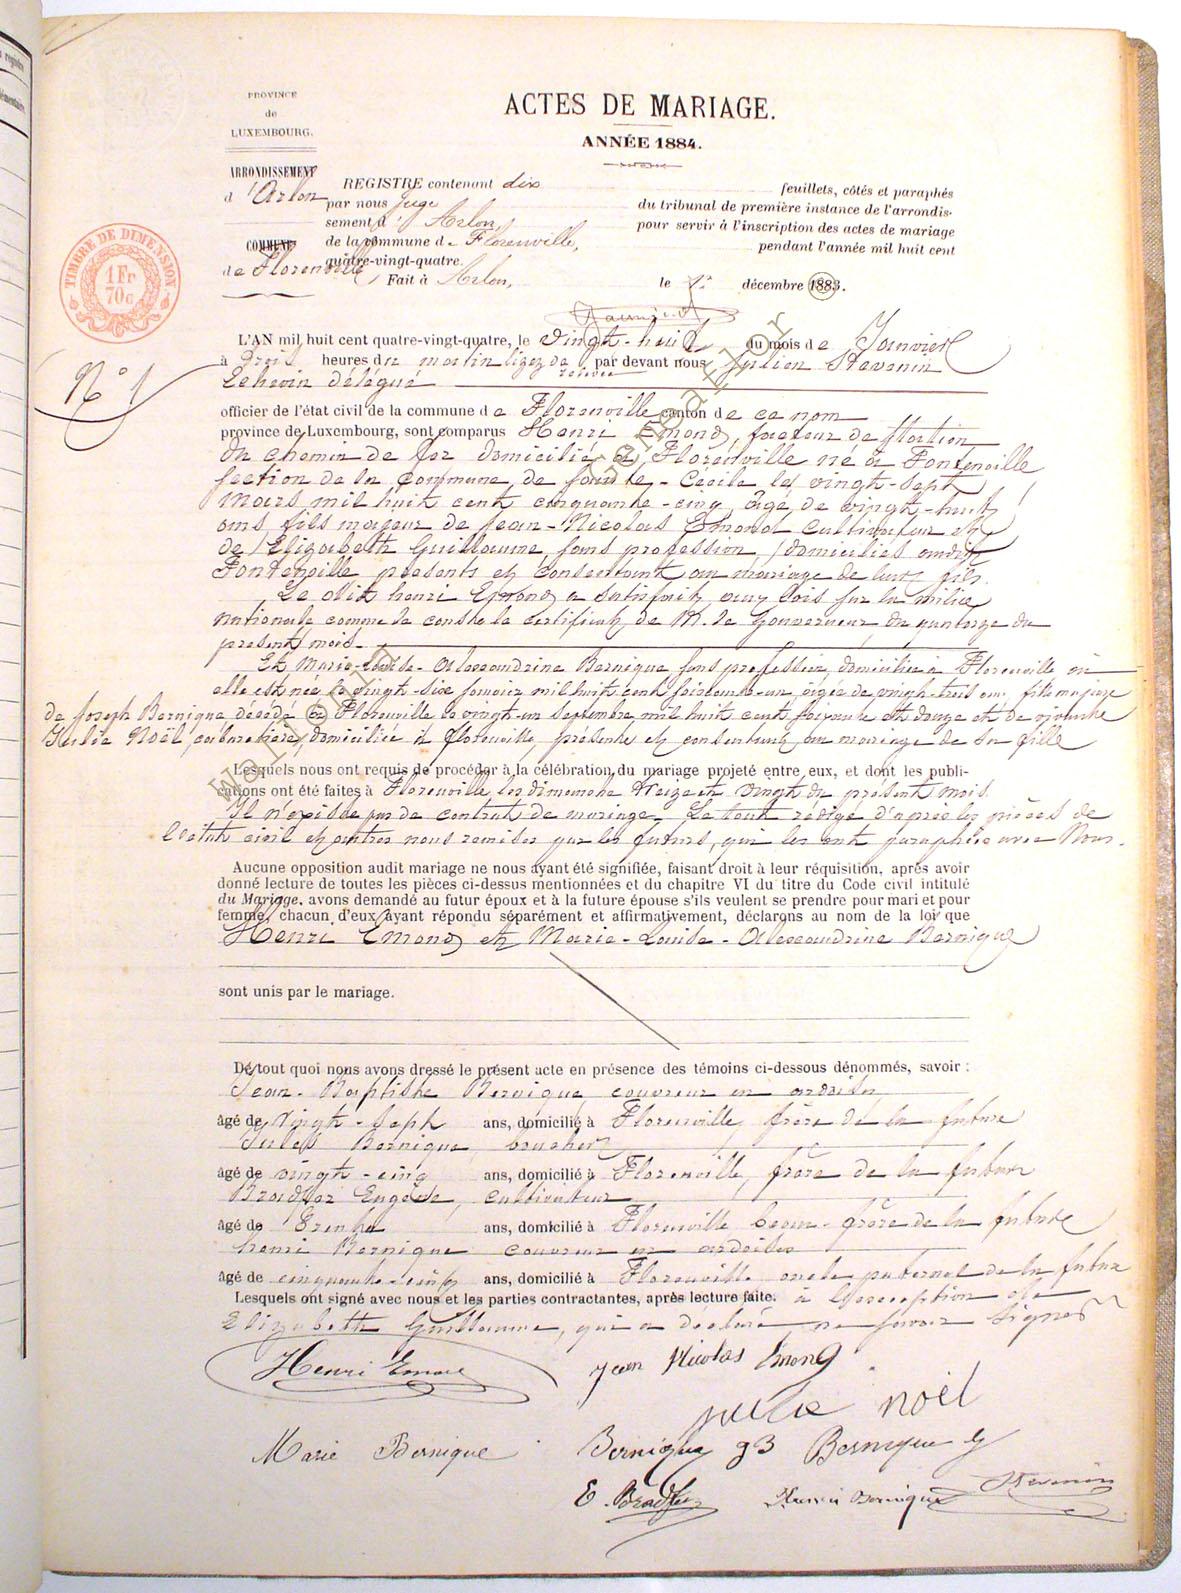 PROVINCE
de
LUXEMBOURG.
ARRONDISSEMENT
d'Arlon
COMMUNE
de Florenville
ACTES DE MARIAGE.
ANNÉE 1884.
REGISTRE contenant dix feuillets, côtés et paraphés
par nous juge du tribunal de première instance de l'arrondis-
sement d'Arlon, pour servir à l'inscription des actes de mariage
de la commune de Florenville, pendant l'année mil huit cent
quatre-vingt-quatre.
Fait à Arlon, le décembre 1883.
TIMBRE DE DIMENSION
1 Fr
70c
N° 1
L'AN mil huit cent quatre-vingt-quatre, le vingt-huit du mois de Janvier
à trois heures du matin par devant nous Julien Stévenin
Echevin délégué
officier de l'état civil de la commune de Florenville canton de ce nom
province de Luxembourg, sont comparus Henri Emond, facteur de station
du chemin de fer domicilié à Florenville né à Fontenoille
section de la commune de Sainte-Cécile le vingt-sept
mars mil huit cent cinquante-cinq, âgé de vingt-huit
ans fils majeur de Jean-Nicolas Emond cultivateur et
de Elizabeth Guillaume, sans profession, domiciliés audit
Fontenoille présents et consentant au mariage de leur fils.
Le dit henri Emond a satisfait aux lois sur la milice
nationale comme le constate le certificat de M. le Gouverneur du quatorze du
présent mois.
Et Marie-Louise-Alexandrine Bernique sans profession, domiciliée à Florenville où
elle est née le vingt-six janvier mil huit cent soixante-un, âgée de vingt-trois ans, fille majeure
de Joseph Bernique décédé à Florenville le vingt-un septembre mil huit cent soixante et douze et de
Julie Noël, cabaretière, domiciliée à florenville, présente et consentant au mariage de sa fille
Lesquels nous ont requis de procéder à la célébration du mariage projeté entre eux, et dont les publi-
cations ont été faites à Florenville les dimanche treize et vingt du présent mois.
Il n'existe pas de contrat de mariage. Le tout rédigé d'après les pièces de
l'état civil et autres nous remises par les futurs, qui les ont paraphées avec Nous.
Aucune opposition audit mariage ne nous ayant été signifiée, faisant droit à leur réquisition, après avoir
donné lecture de toutes les pièces ci-dessus mentionnées et du chapitre VI du titre du Code civil intitulé
du Mariage, avons demandé au futur époux et à la future épouse s'ils veulent se prendre pour mari et pour
femme, chacun d'eux ayant répondu séparément et affirmativement, déclarons au nom de la loi que
Henri Emond et Marie-Louise-Alexandrine Bernique
sont unis par le mariage.
De tout quoi nous avons dressé le présent acte en présence des témoins ci-dessous dénommés, savoir :
Jean-Baptiste Bernique, couvreur en ardoises
âgé de vingt-sept ans, domicilié à Florenville, frère de la future
Jules Bernique,
âgé de vingt-cinq ans, domicilié à Florenville, frère de la future
Bradfer Eugène, cultivateur
âgé de trente ans, domicilié à Florenville beau-frère de la future
henri Bernique couvreur en ardoises
âgé de cinquante-cinq ans, domicilié à Florenville oncle paternel de la future
Lesquels ont signé avec nous et les parties contractantes, après lecture faite. à l'exception de
Elizabeth Guillaume, qui a déclaré ne savoir signer
Henri Emond
Jean Nicolas Emond
julie noël
Marie Bernique
Bernique JB
Bernique J
E. Bradfer
Henri Bernique
Stévenin
Wallonia GeneaFlor